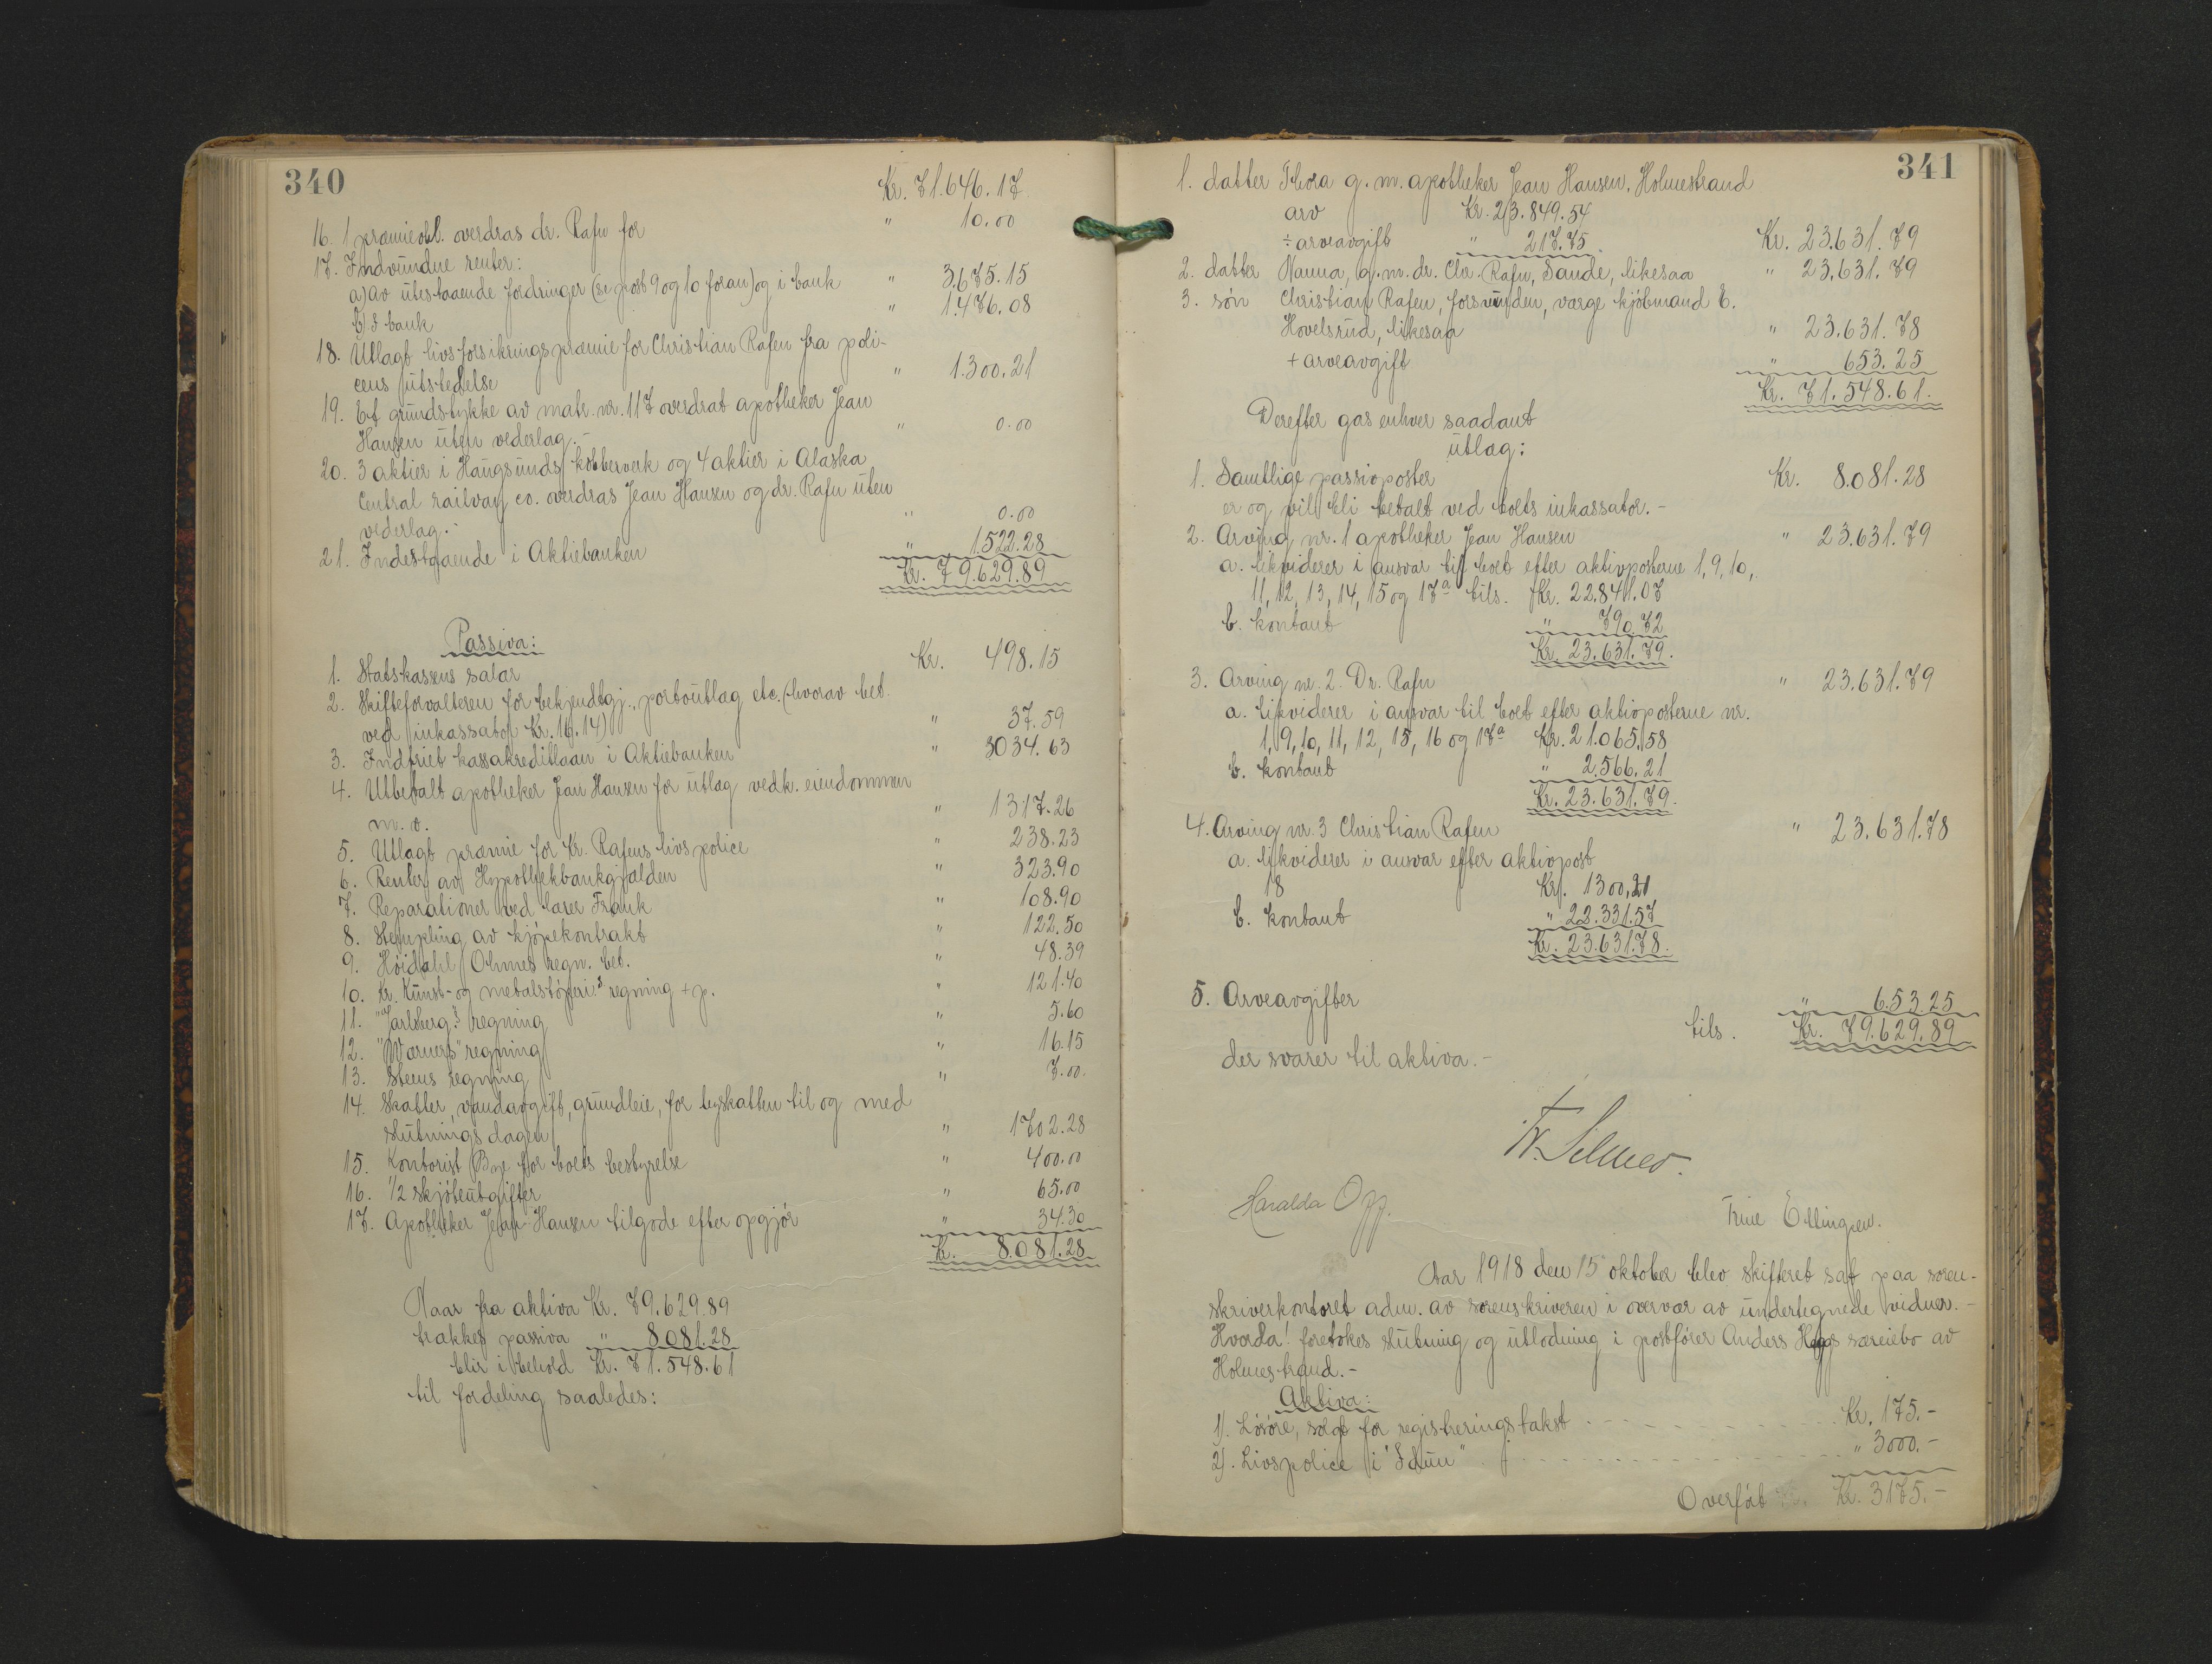 340
Kr. 71.646.17
16. 1 præmieobl. overdras dr. Rafn for " 10.00
17. Indvundne renter:
a) av utestaaende fordringer (se post 9 og 10 foran) og i bank " 3.675.15
b) I bank " 1.476.08
18. Utlagt livsforsikringspræmie for Christian Rafen fra poli-
cens utstedelse " 1.300.21
19. Et grundstykke av matr. nr. 117 overdrat apotheker Jean
Hansen uten vederlag.- " 0.00
20. 3 aktier i Haugsunds kobberverk og 4 aktier i Alaska
Central railway co. overdras Jean Hansen og dr. Rafn uten
vederlag.- " 0.00
21. Indestaaende i Aktiebanken " 1.522.28
Kr. 79.629.89
Passiva:
1. Statskassens salær Kr. 498.15
2. Skifteforvalteren for bekjendtgj., portoutlag etc. (hvorav bet.
ved inkassator Kr. 16.14) " 37.59
3. Indfriet kassakreditlaan i Aktiebanken " 3034.63
4. Utbetalt apotheker Jean Hansen for utlæg vedk. eiendommen
m.v. " 1317.26
5. Utlagt præmie for Kr. Rafens livspolice " 238.23
6. Renter av Hypothekbankgjælden " 323.90
7. Reparationer ved lærer Frank " 108.90
8. Stempling av kjøpekontrakt " 122.50
9. Høidahl Ohmes regn. bet. " 48.39
10. Kr. Kunst- og metalstøperi's regning + p. " 121.40
11. "Jarlsberg"s regning " 5.60
12. "Værners" regning " 16.15
13. Stens regning " 7.00.
14. Skatter, vandavgift, grundleie, for byskatten til og med
slutningsdagen " 1702.28
15. Kontorist Boye for boets bestyrelse " 400.00
16. 1/2 skjøteutgifter " 65.00
17. Apotheker Jean Hansen tilgode efter opgjør " 34.30
Kr. 8.081.28
Naar fra aktiva Kr. 79.629.89
trækkes passiva " 8.081.28
blir i behold Kr. 71.548.61
til fordeling saaledes:
341
1. datter Thora g. m. apotheker Jean Hansen, Holmestrand
arv Kr. 23.849.54
÷ arveavgift " 217.75 Kr. 23.631.79
2. datter Nanna, g. m. dr. Chr. Rafn, Sande, likesaa " 23.631.79
3. søn Christian Rafen, forsvunden, værge kjøbmand E.
Hovelsrud, likesaa " 23.631.78
+ arveavgift " 653.25
Kr. 71.548.61.
Derefter gas enhver saadant
utlæg:
1. Samtlige passivposter Kr. 8.081.28
er og vil bli betalt ved boets inkassator.-
2. Arving nr. 1 apotheker Jean Hansen " 23.631.79
a. likviderer i ansvar til boet efter aktivposterne 1, 9, 10,
11, 12, 13, 14, 15 og 17a tils. Kr. 22.841.07
b. kontant " 790.72
Kr. 23.631.79.
3. Arving nr. 2. Dr. Rafn " 23.631.79
a. likviderer i ansvar til boet efter aktivposterne nr.
1, 9, 10, 11, 12, 15, 16 og 17a Kr. 21.065.58
b. kontant " 2.566.21
Kr. 23.631.79.
4. Arving nr. 3 Christian Rafen " 23.631.78
a. likviderer i ansvar efter aktivpost
18 Kr. 1300,21
b. kontant " 22.331.57
Kr. 23.631.78.
5. Arveavgifter " 653.25
tils. Kr. 79.629.89
der svarer til aktiva.-
Haralda Opp.
Trine Ellingsen.
Aar 1918 den 15 oktober blev skifteret sat paa soren-
skriverkontoret adm. av sorenskriveren i overvær av undertegnede vidner.-
Hvorda! foretokes slutning og utlodning i postfører Anders Høegs særeiebo av
Holmestrand.-
Aktiva:
1). Løsøre, solgt for registreringstakst Kr. 175.-
2). Livspolice i "Idun" " 3000.-
Overført Kr. 3175.-